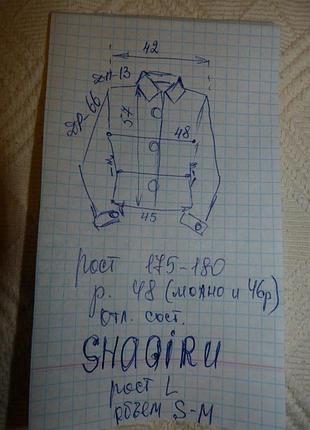 42
ДП-13
ДР-66
57
48
45
рост 175-180
р. 48 (можно и 46р)
отл. сост.
SHAGIRU
рост L
объем S-M